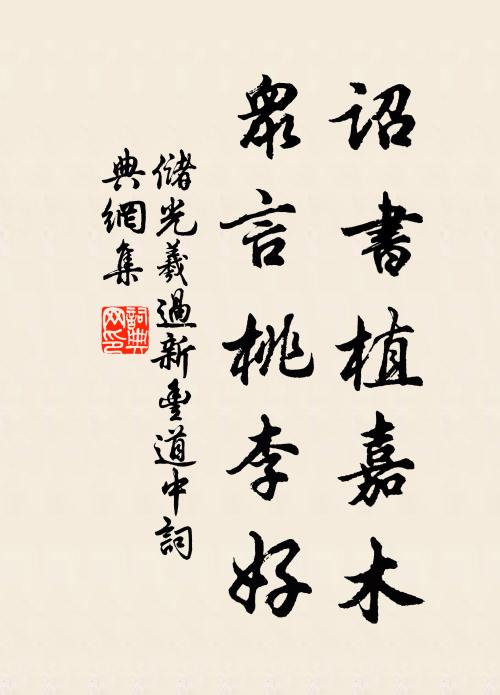 詔書植嘉木
衆言桃李好
儲光羲過新豐道中詞
典網集
詞典网印